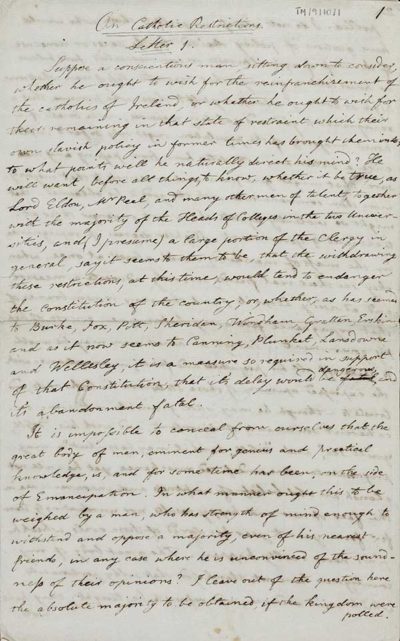 TM/9/10/1
1
On Catholic Restrictions
Letter 1.
Suppose a conscientious man sitting down to consider,
whether he ought to wish for the reinfranchizement of
the catholics of Ireland, or whether he ought to wish for
their remaining in that state of restraint which their
own slavish policy in former times has brought them into,
to what points will he naturally direct his mind? He
will want, before all things, to know, whether it be true, as
Lord Eldon, Mr Peel, and many other men of talent, together
with the majority of the Heads of Colleges in the two Univer-
sities, and (I presume) a large portion of the Clergy in
general, say it seems to them to be, that the withdrawing
these restrictions, at this time, would tend to endanger
the constitution of the country; or, whether, as has seemed
to Burke, Fox, Pitt, Sheridan, Windham, Grattan, Erskine
and as it now seems to Canning, Plunket, Lansdowne
and Wellesley, it is a measure so required in support
dangerous
of that Constitution, that its delay would be fatal and
its abandonment fatal.
It is impossible to conceal from ourselves that the
great body of men, eminent for genius and practical
knowledge, is, and for some time has been, on the side
of Emancipation. In what manner ought this to be
weighed by a man, who has strength of mind enough to
withstand and oppose a majority, even of his nearest
friends, in any case where he is unconvinced of the sound-
ness of their opinions? I leave out of the question here
the absolute majority to be obtained, if the kingdom were
polled.